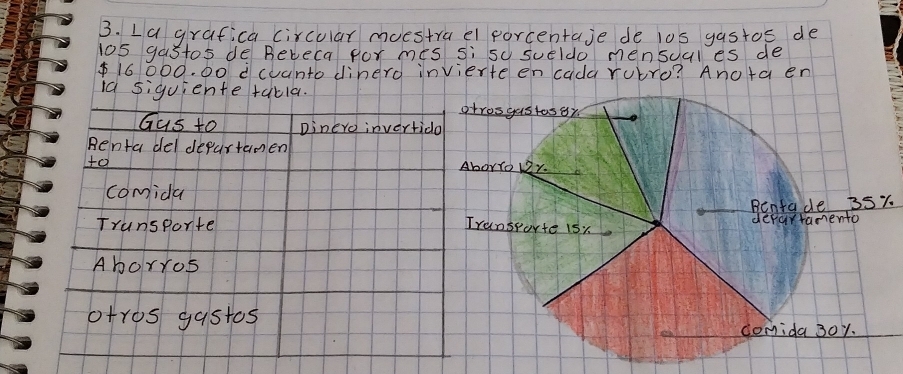 3. La grafica circular muestra el porcentaje de los gastos de
los gastos de Rebeca por mes si su sueldo mensual es de
$16 000.00 d cuanto dinero invierte en cada rubro? Anota en
la siguiente tabla.
Gasto
Dinero invertido
Renta del departamen
to
Comida
Transporte
Ahorros
otros gastos
otros gastos 8%
Ahorro 12%
Transporte 15%
Renta de 35%
departamento
Comida 30%.